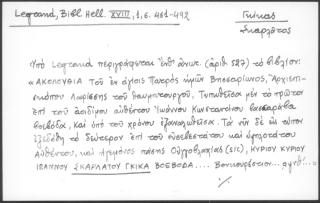 Legrand, Bibl. Hell. XVIII, 1, σ. 491-492
Γκίκας
Σκαρλᾶτος
Ὑπὸ Legrand περιγράφεται ὑπ' ἀριθ. (ἀριθ. 527) τὸ βιβλίον:
"ΑΚΟΛΟΥΘΙΑ τοῦ ἐν ἁγίοις Πατρὸς ἡμῶν Βησσαρίωνος, Ἀρχιεπι-
σκόπου Λαρίσσης τοῦ θαυματουργοῦ. Τυπωθεῖσα μὲν τὸ πρῶτον
ἐπὶ τοῦ ἀοιδίμου αὐθέντου Ἰωάννου Κωνσταντίνου Βασσαράβα
βοεβόδα, καὶ ὑπὸ τοῦ χρόνου ἐξαναλωθεῖσα. Τὰ νῦν δὲ εἰς τύπον
ἐξεδόθη τὸ δεύτερον ἐπὶ τοῦ εὐσεβεστάτου καὶ ὑψηλοτάτου
Αὐθέντου, καὶ ἡγεμόνος πάσης Οὐγγροβλαχίας (sic), ΚΥΡΙΟΥ ΚΥΡΙΟΥ
ΙΩΑΝΝΟΥ ΣΚΑΡΛΑΤΟΥ ΓΚΙΚΑ ΒΟΕΒΟΔΑ.... Βουκουρέστιον...